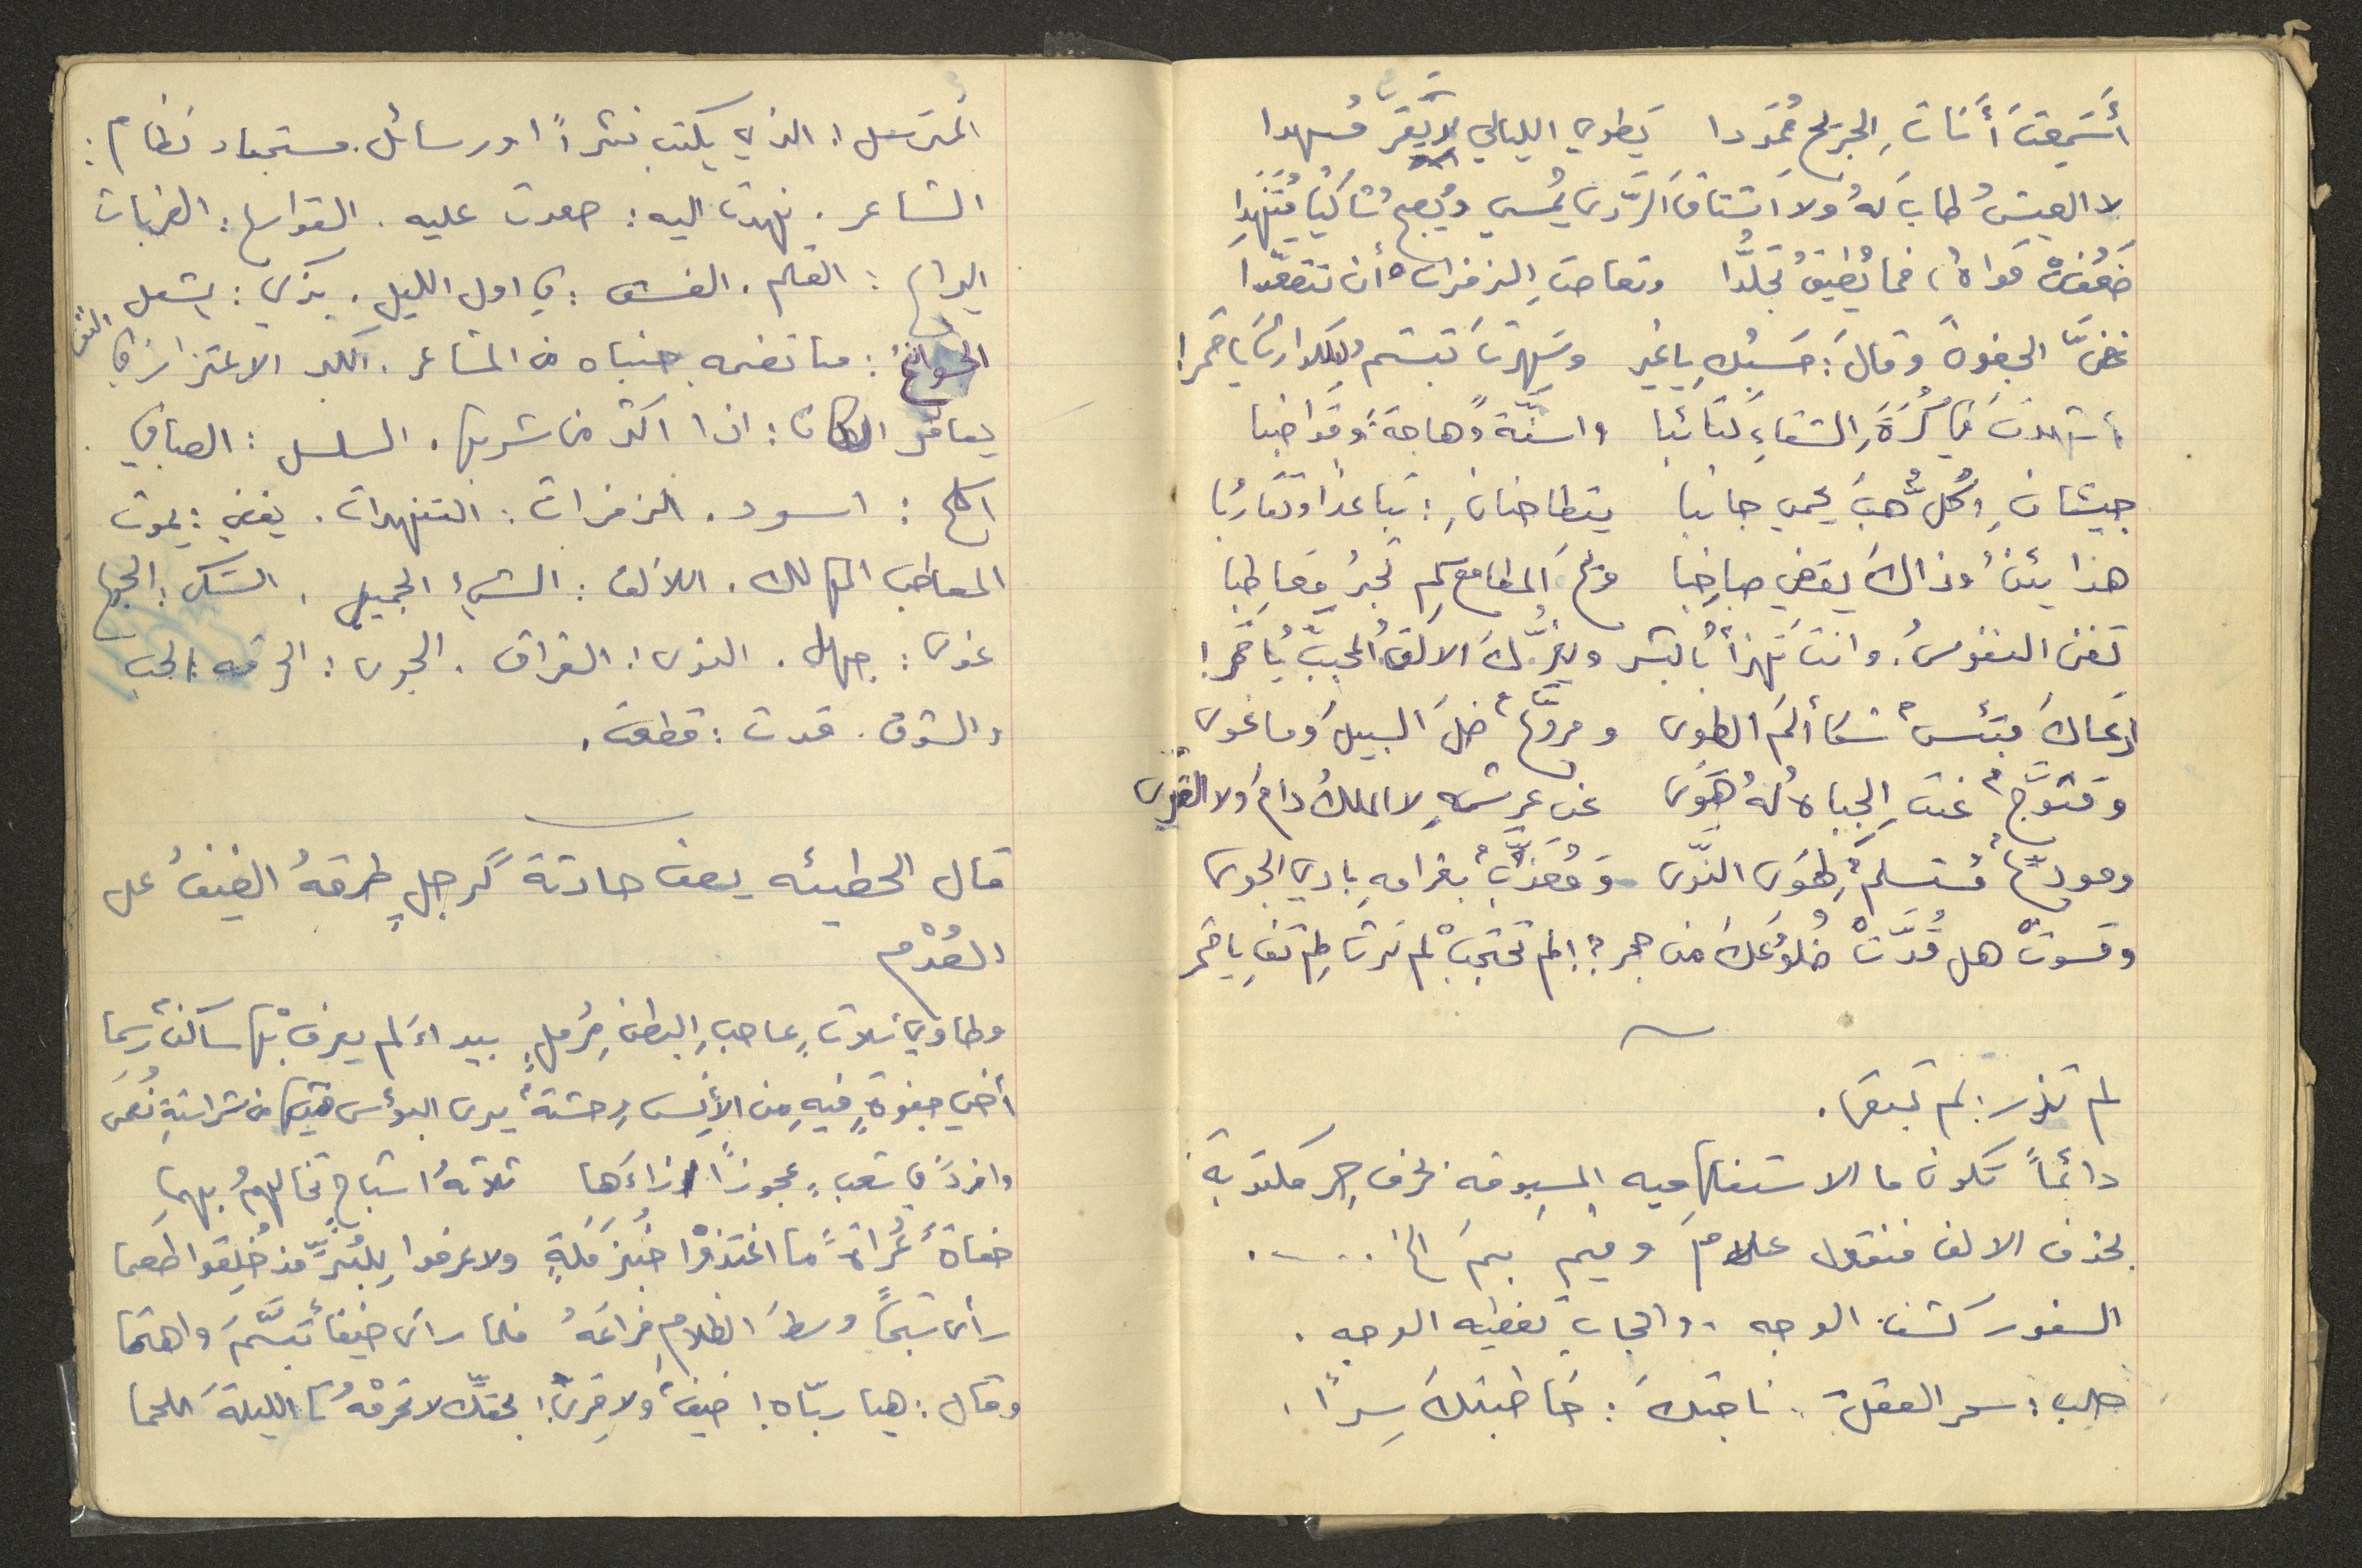 أسَمِعتَ أنّاتِ الجريحِ مُمَدّدا يَطوي الليالي لا يَقرّ مُسهدا
لا العيشُ طابَ لهُ ولا اشتاقَ الرَّدى يُمسي ويُصبحُ شاكيًا مُتَنَهِّدا
ضَعُفَتْ قواهُ، فما يُطيقُ تجلُّدًا وتعاصتِ الزفراتُ أن تتصعّدا
غضَّ الجفونَ وقالَ: حَسبُكِ يا غِيَر وسَهِرتَ تبتسم يا قمر!
أشهدتَ في كُرَةِ الشقاءِ كتائبا وأسنّةً وهاجةً وقواضبا
جيشانِ، كُلٌّ هبَّ يحمي جانبا يتطاحنانِ: تباعدًا وتقارُبا
هذا يئنُّ وذاكَ يقضي صاخِبا المطامعُ كم تجرُّ مَعاطِبا
تفنى النفوسُ، وانتَ تَهزأُ بالبشر ويغرُّكَ الالقُ المحببُ يا قمر!
ارَعاكَ مبتئسٌ شكا ألمَ الطوى ومروَّعٌ ضلَّ السبيلَ وما غوى
ومتوَّجٌ عنتِ الجباهُ لهُ هَوَى عن عرشهِ لا الملكُ دامَ ولا القوى
ومودعٌ مُستسلمٌ لِهَوى النَّوى ومُعَذَّبٌ بغرامهِ بادي الجوى
وقسوتَ هل قُدَّتْ ضلوعُكَ من حجر؟! لم تحتجبْ لم تَرثِ لم تَفِ يا قمر

لم تذر: لم تبق.
دائماً تكون ما الاستفهامية المسبوقة بحرف جر مكتوبة
بحذف الالف فنقول علامَ وفيمَ بمَ الخ.....
السفور كشف الوجه، والحجاب تغطية الوجه.
خلب: سحر العقل. ناجتكَ: خاطبتكَ سراً.

المترسل: الذي يكتب نثراً او رسائل. نظام:
الشاعر. نهدت اليه: صعدت عليه. القوارع: الضربات
اليراع: القلم. الغسق: في اول الليل. يذكي: يشعل
الجوانح: ما تضمه جنباه من المشاعر. الكبر الاعتزاز في النفس
يعاقر الكأس: اذا اكثر من شربها. السلسل: الصافي.
اكلح: اسود. الزفرات: التنهدات. يقضي: يموت
المعاطب المهالك. الالق: الشيء الجميل.
غوى: جهل. النوى: الفراق. الجوى: الحرقه الحب
والشوق. قدت: قطعت.

قال الحطيئه يصف حادثة كرجلٍ طرقهُ الضيفُ على
العُدْم
وطاوي ثلاثٍ عاصبِ البطنِ مُرملٍ ببيداءَ لم يعرفْ بها ساكنٌ رسما
أخي جفوةٍ فيهِ من الأنسِ وحشةٌ يرى البؤس فيها من شراستهِ نُعمى
وافردَ في شعبٍ عجوزًا إزاءَها ثلاثةُ اشباحٍ تخالهمُ بهما
حفاةٌ عُراةٌ ما اغتذوْا خبزَ مَلةٍ ولا عرفوا لِلبُرِّ مذ خُلِقوا طعما
رأى شبحًا وسطَ الظلامِ فراعهُ فلما رأى ضيفًا تبسَّمَ واهتما
وقال: هيا ربّاه! ضيفٌ ولا قِرىً! بحقكَ لا تحرمْهُ تا الليلةَ اللحما